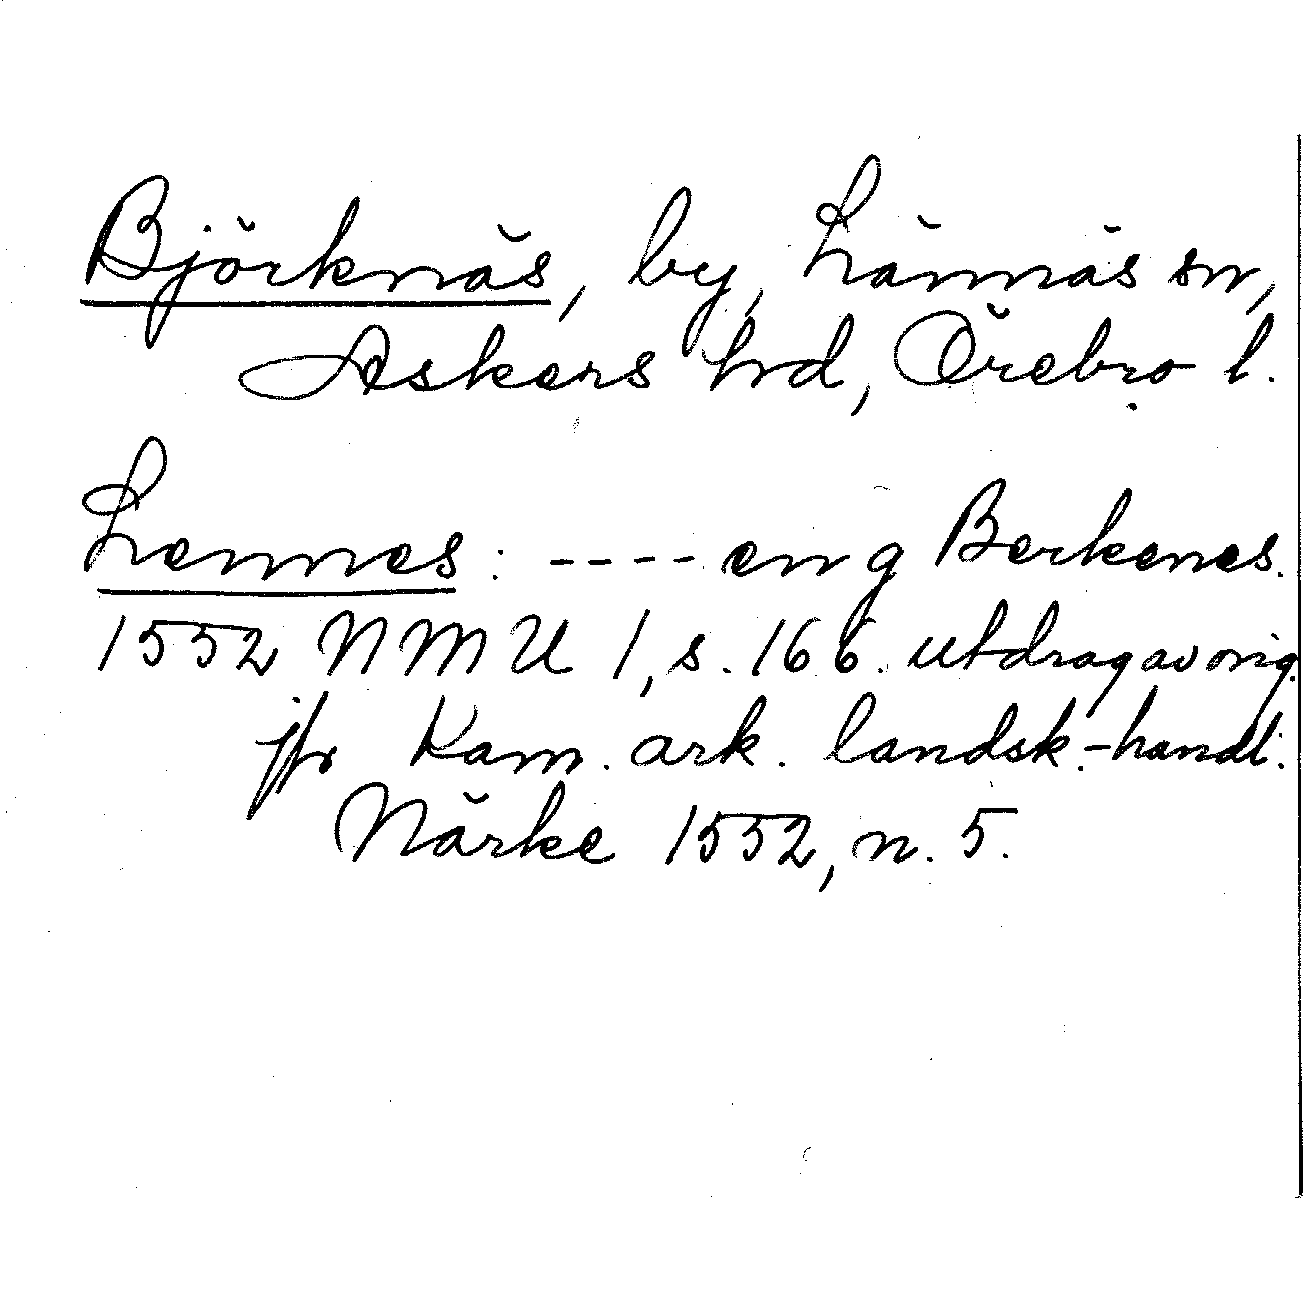 Björknäs, by, Lännäs sn,
Askers hrd, Örebro l.
Lennes: ---- en g Berkenes.
1552 NMU 1, s. 166. utdrag av orig.
jfr Kam. ark. landsk.-handl.
Närke 1552, n. 5.